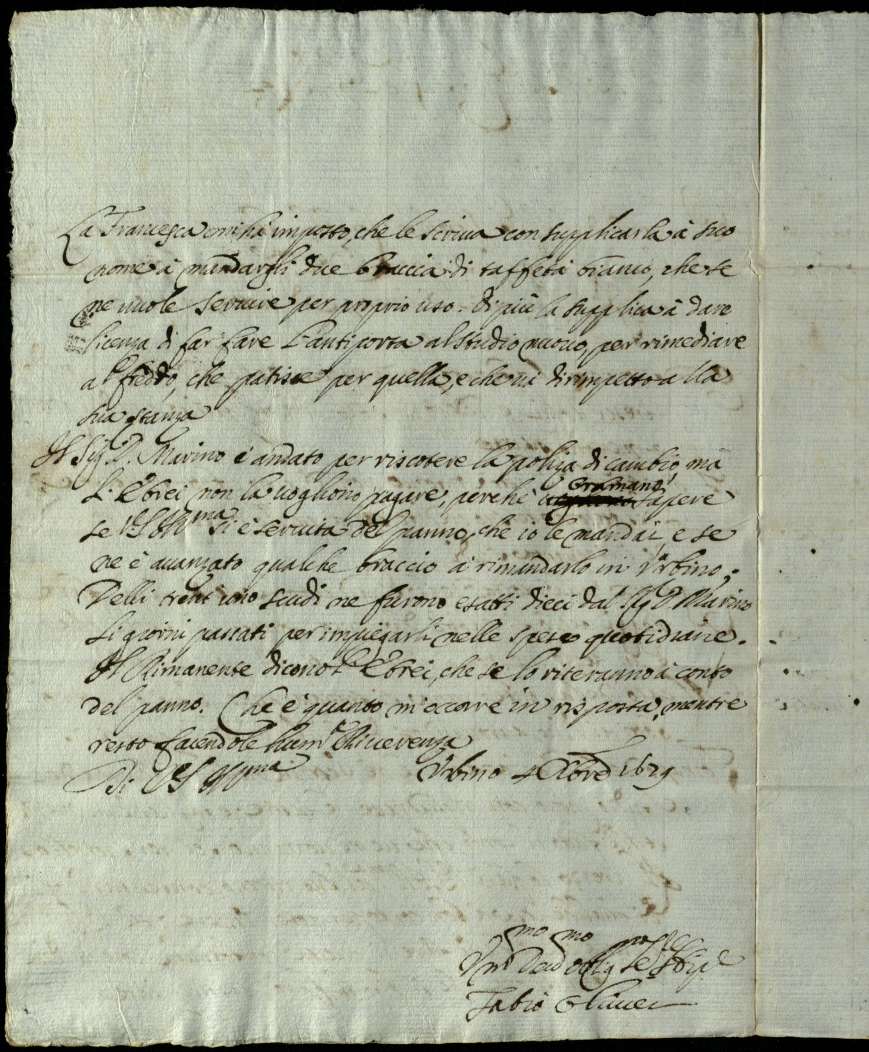 La Francesca mi hà imposto, che le scriva con supplicarla à suo
nome à mandargli due braccia di taffetà bianco, che se
ne vuole servire per proprio uso. Di più la supplica à dare
licenza di far fare l'antiporta al studio nuovo, per rimediare
al freddo, che patisce per quella, e che và dirimpetto alla
sua stanza
Il Sig.r D. Marino è andato per riscotere la poliza di cambio, mà
l'Ebrei non la vogliono pagare, perche sapere
se V.S. Ill.ma si è servita del panno, che io le mandai, e se
ne è avanzato qualche braccio à rimandarlo in Urbino;
Delli trent'uno scudi ne furono esatti dieci dal Sig.r D. Marino
li giorni passati per impiegarli nelle spese quotidiane.
Il Rimanente dicono l'Ebrei, che se lo riteranno à conto
del panno. Che è quanto m'occorre in risposta, mentre
resto facendole hum.e Riverenza
Di V.S. Ill.ma Urbino 4 Xbre
Fabio